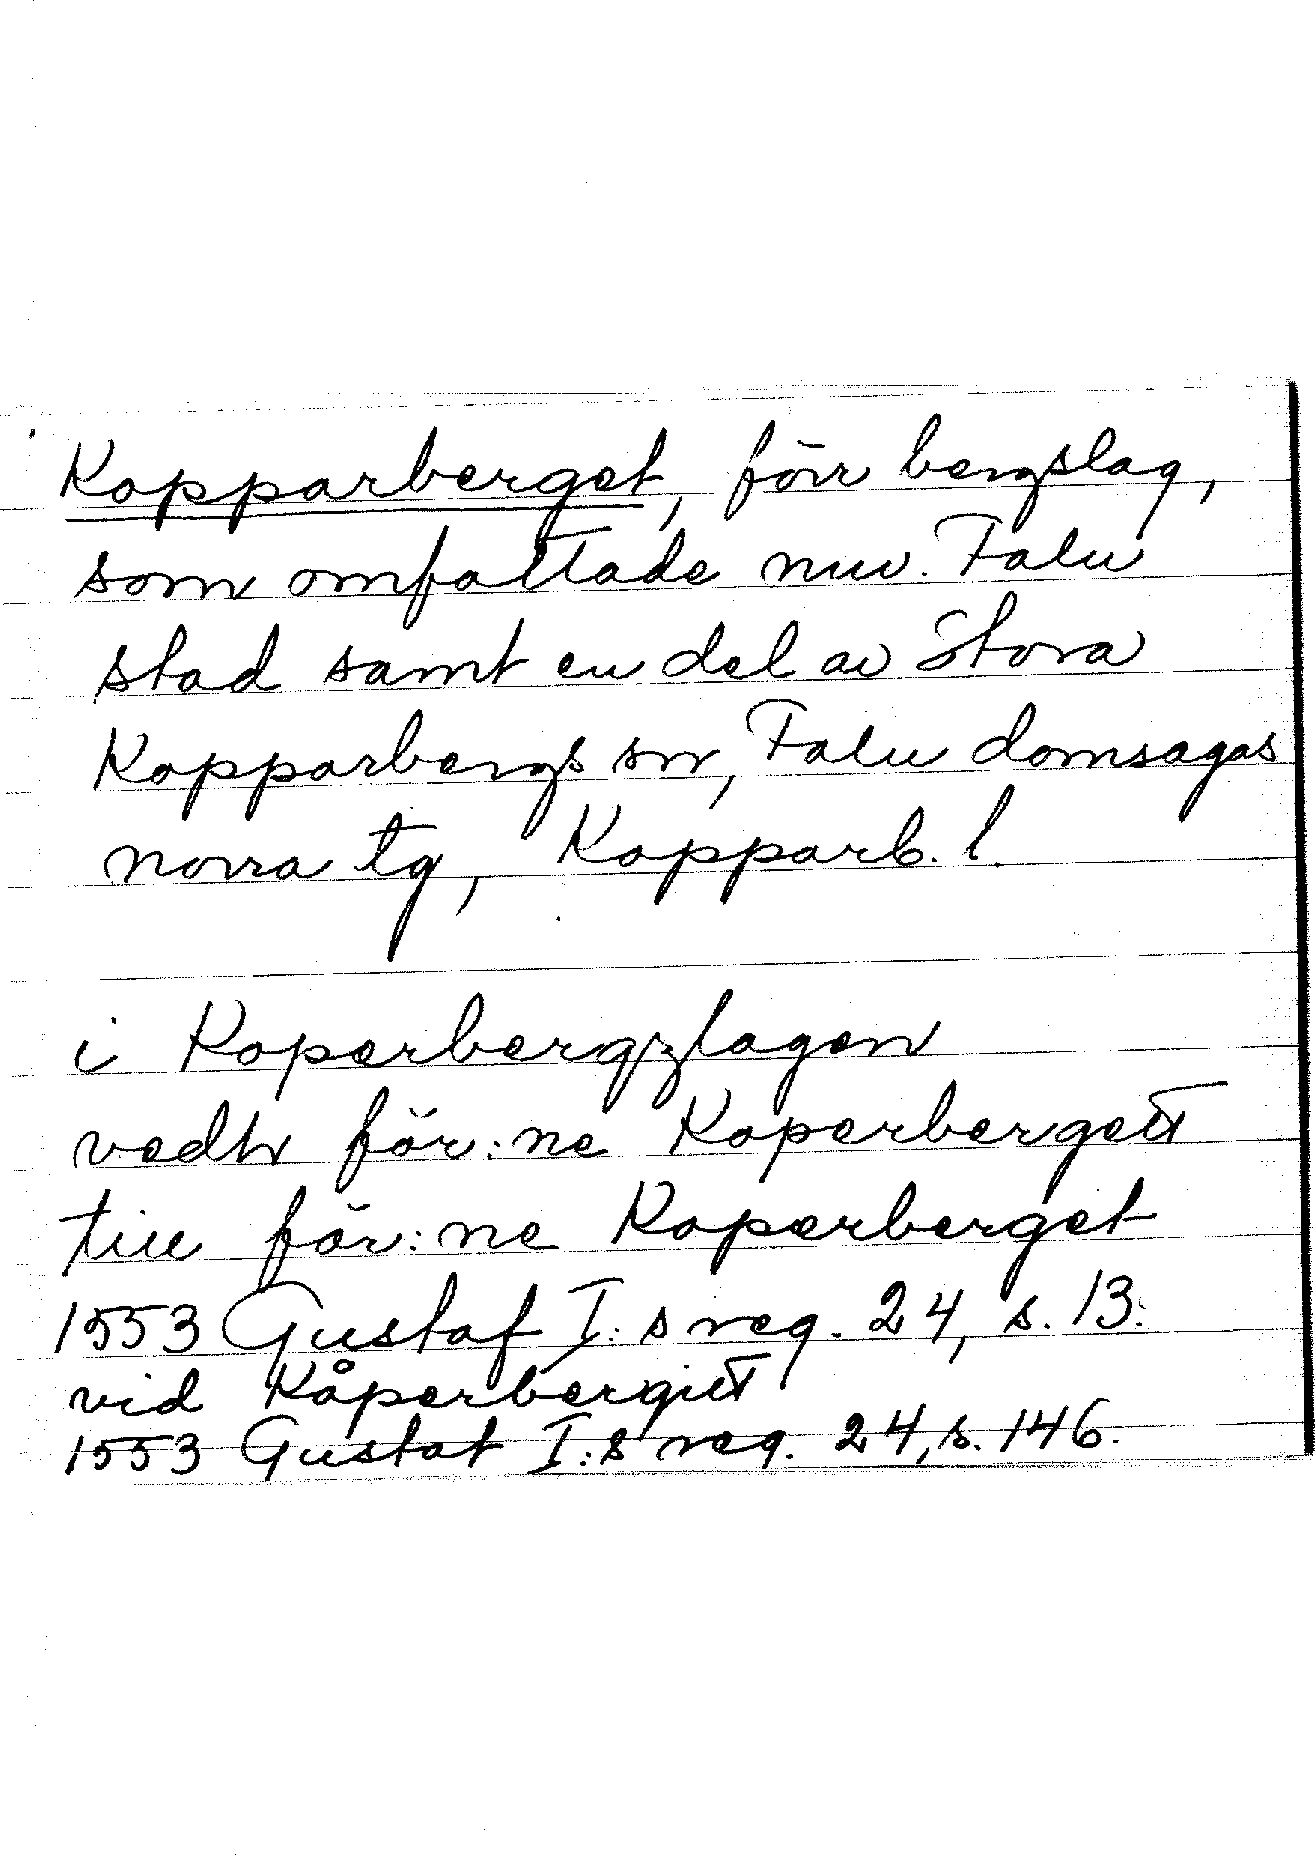 Kopparberget, förr bergslag,
som omfattade nuv. Falu
stad samt en del av Stora
Kopparbergs sn, Falu domsagas
norra tg, Kopparb. l.
i Koperbergzlagen
vedh för:ne Koperbergett
till för:ne Koperberget
1553 Gustaf I:s reg. 24, s. 13.
vid Kåperbergitt
1553 Gustaf I:s reg. 24, s. 146.